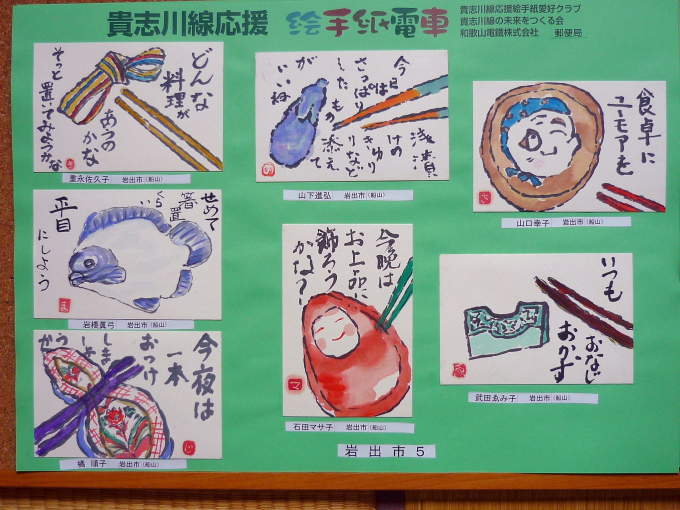 貴志川線応援 絵手紙電車
貴志川線応援絵手紙愛好クラブ
貴志川線の未来をつくる会
和歌山電鐵株式会社 郵便局
どんな
料理が
あうの
かな
そっと
置いてみようかな
重永佐久子 岩出市(船山)
今日は
さっぱり
した もの
が
いいね
浅漬
けの
きゅうり
など
添えて
山下進弘 岩出市(船山)
食卓に
ユーモアを
山口幸子 岩出市(船山)
せめて
箸置
くらい
平目
にしよう
岩橋眞弓 岩出市(船山)
今晩は
お上品に
飾ろう
かな?
石田マサ子 岩出市(船山)
いつも
おなじ
おかず
武田ゑみ子 岩出市(船山)
今夜は
一本
おつけ
しま
しょ
うか
橘 順子 岩出市(船山)
岩出市5